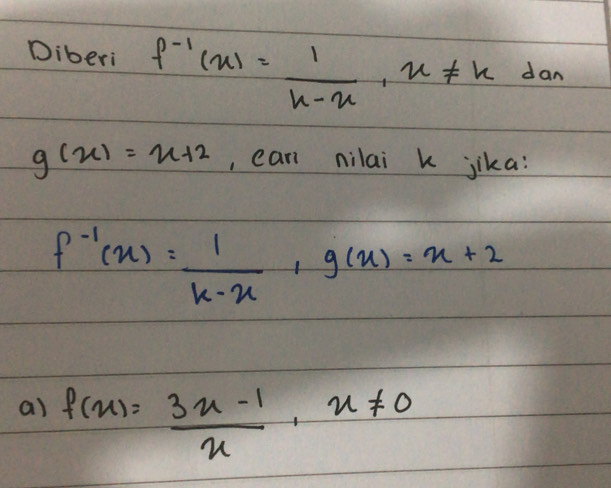 Diberi f⁻¹(x) = 1/(k-x) , x ≠ k dan
g(x) = x+2 , cari nilai k jika:
f⁻¹(x) = 1/(k-x) , g(x) = x + 2
a) f(x) = (3x-1)/x , x ≠ 0